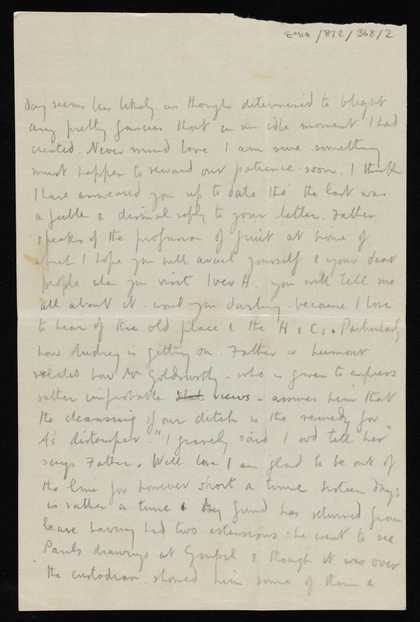 872/368/2
Day seems less likely as though determined to blight
any pretty fancies that in an idle moment I had
created. Never mind love I am sure something
must happen to reward our patience soon. I think
I have answered you up to date tho' the last was
a futile & dismal reply to your letter. Father
speaks of the profusion of fruit at home of
which I hope you will avail yourself & your dear
people when you visit Iver H. you will tell me
all about it - wont you darling because I love
to hear of the old place & the H & Cs. Particularly
how Audrey is getting on. Father is humorous
relates how Mr Goldsworthy - who is given to express
rather improbable views - assures him that
the cleansing of our ditch is the remedy for
distemper. "I gravely said I wd tell her"
says Father. Well love I am glad to be out of
the line for however short a time. Sixteen days
is rather a time & my friend has returned from
leave having had two extensions: he went to see
Pauls drawings at Goupil & though it was over
the custodian showed him some of them &